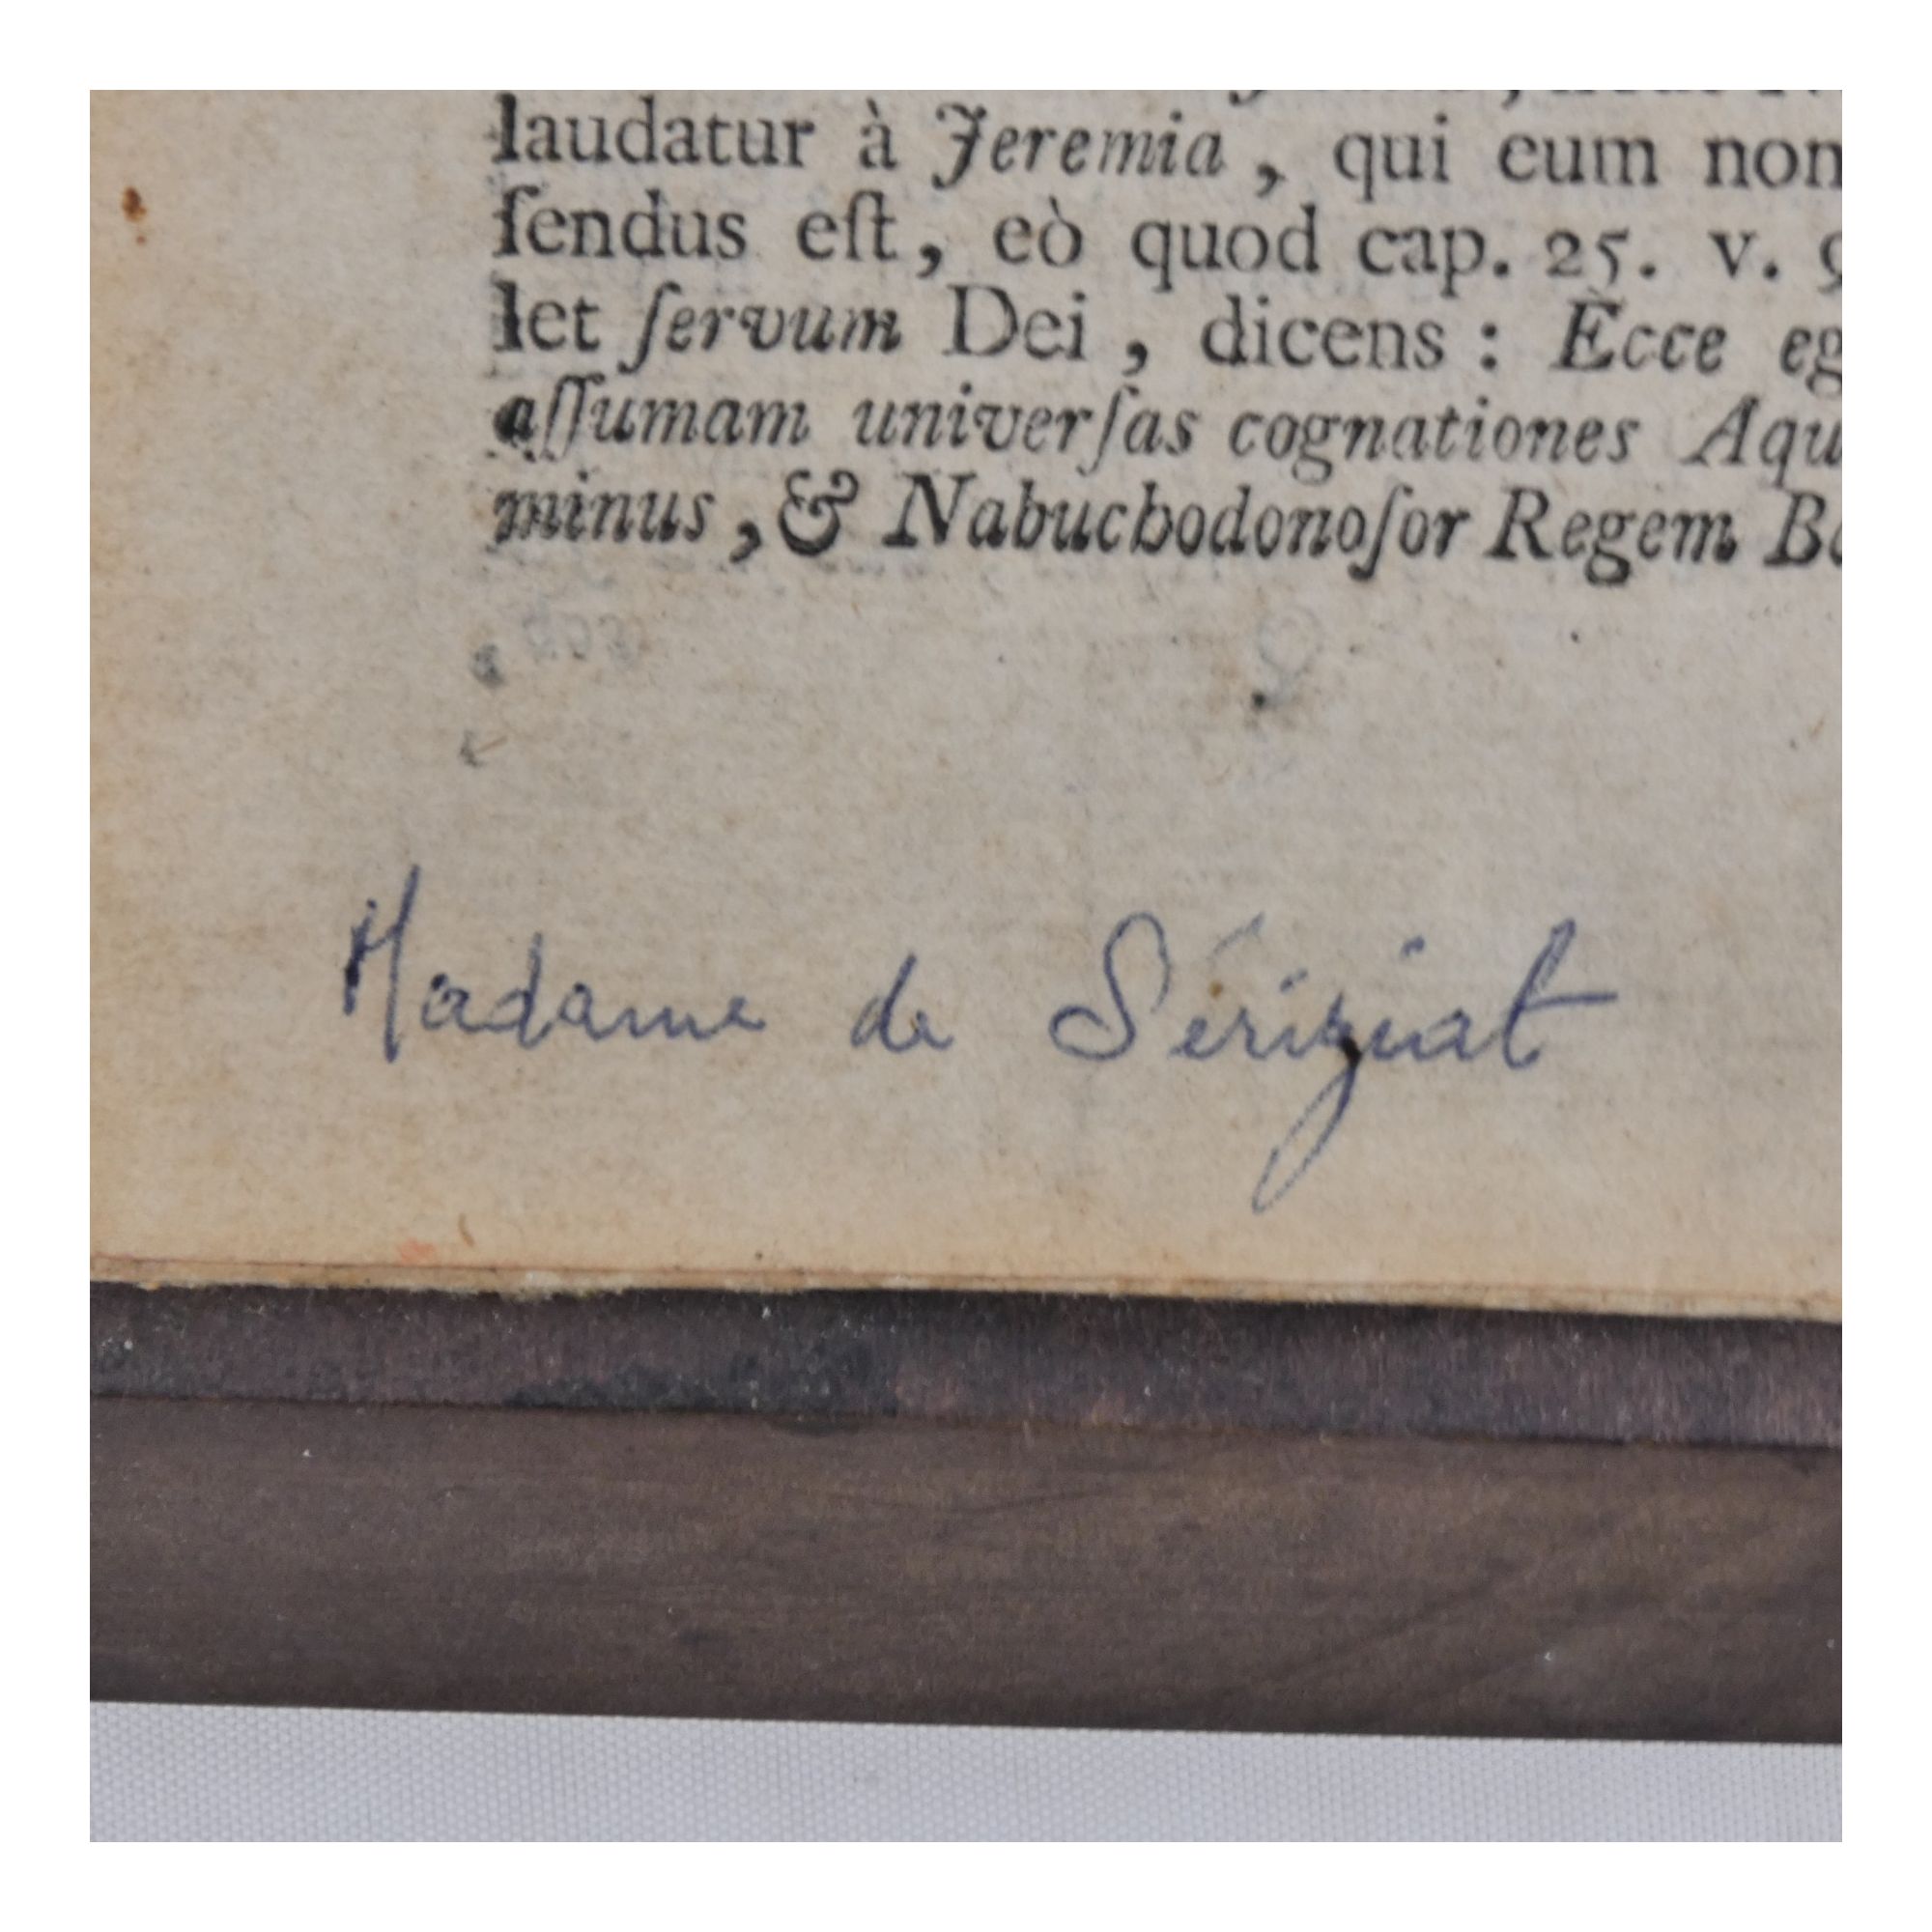 laudatur à Jeremia, qui eum non
ſendus eſt, eò quod cap. 25. v. 9
let ſervum Dei, dicens: Ecce eg
aſſumam univerſas cognationes Aqu
minus, & Nabuchodonoſor Regem Ba
Madame de Sériziat